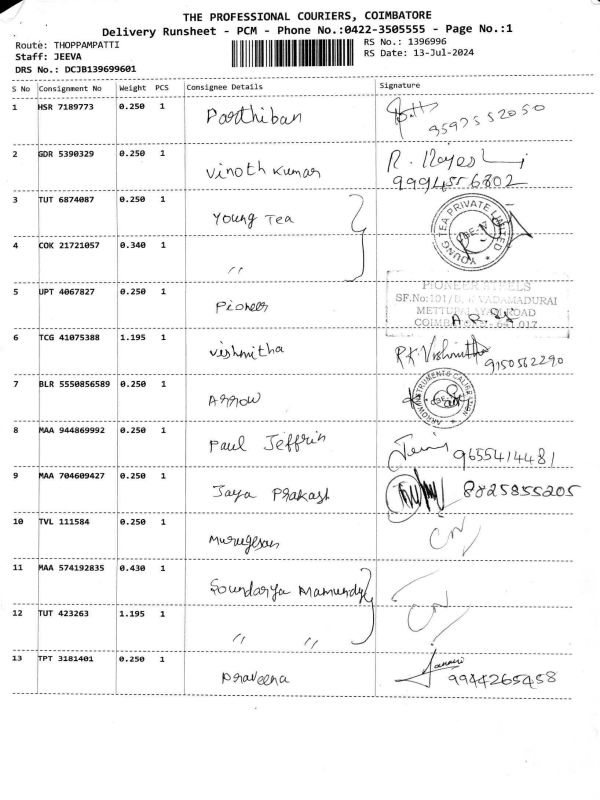 THE PROFESSIONAL COURIERS, COIMBATORE
Delivery Runsheet - PCM - Phone No.:0422-3505555 - Page No.:1
Route: THOPPAMPATTI
Staff: JEEVA
DRS No.: DCJB139699601
RS No.: 1396996
RS Date: 13-Jul-2024
S No Consignment No Weight PCS Consignee Details Signature
1 HSR 7189773 0.250 1 Parthiban
9597552050
2 GDR 5390329 0.250 1 Vinoth Kumar R.
9994556802
3 TUT 6874087 0.250 1 Young Tea YOUNG TEA PRIVATE LIMITED
4 COK 21721057 0.340 1 "
5 UPT 4067827 0.250 1 Pioneer
PIONEER
SF.No:101/B, VADAMADURAI
METTUPALAYAM ROAD
641 017
6 TCG 41075388 1.195 1 Vishmitha R.K. Vishmitha 9150562290
7 BLR 5550856589 0.250 1 Arrow
8 MAA 944869992 0.250 1 Paul Jeffrin 9655414481
9 MAA 704609427 0.250 1 Jaya Prakash 8825855205
10 TVL 111584 0.250 1 Murugesan
11 MAA 574192835 0.430 1 Soundarya Mamundy
12 TUT 423263 1.195 1 " "
13 TPT 3181401 0.250 1 Praveena 9944265458